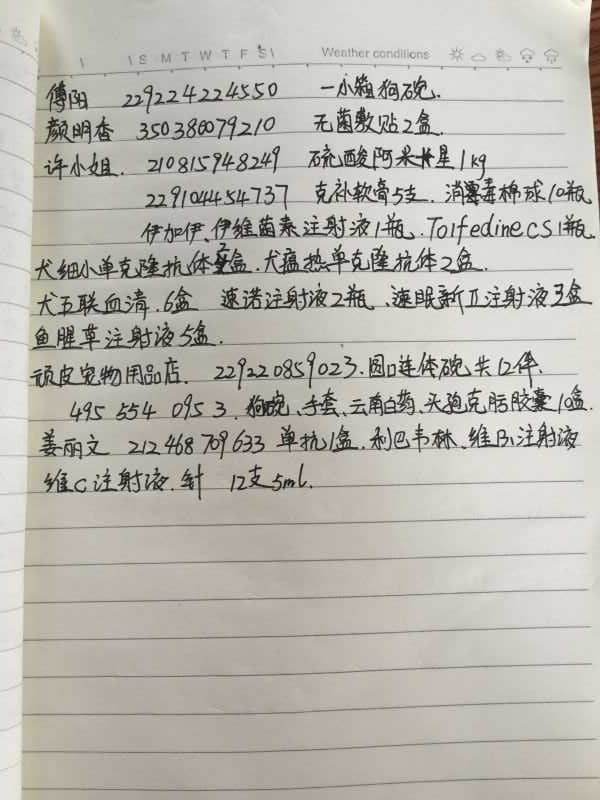 I I S M T W T F S I Weather conditions
傅阳 229224224550 一小箱狗碗.
颜明香 350386079210 无菌敷贴2盒.
许小姐. 210815948249 硫酸阿米卡星1kg
229104454737 克补软膏5支. 消毒棉球10瓶
伊加伊、伊维菌素注射液1瓶. Tolfedine CS 1瓶.
犬细小单克隆抗体2盒. 犬瘟热单克隆抗体2盒.
犬五联血清. 6盒 速诺注射液2瓶、速眠新II注射液3盒
鱼腥草注射液5盒.
顽皮宠物用品店. 229220859023. 圆口连体碗共12件.
495 554 095 3. 狗碗、手套、云南白药、头孢克肟胶囊10盒.
姜丽文 212468709633 单抗1盒. 利巴韦林、维B1注射液
维C注射液. 针 12支5ml.